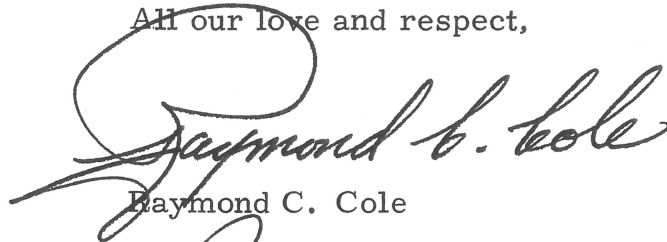 All our love and respect,
Raymond C. Cole
Raymond C. Cole